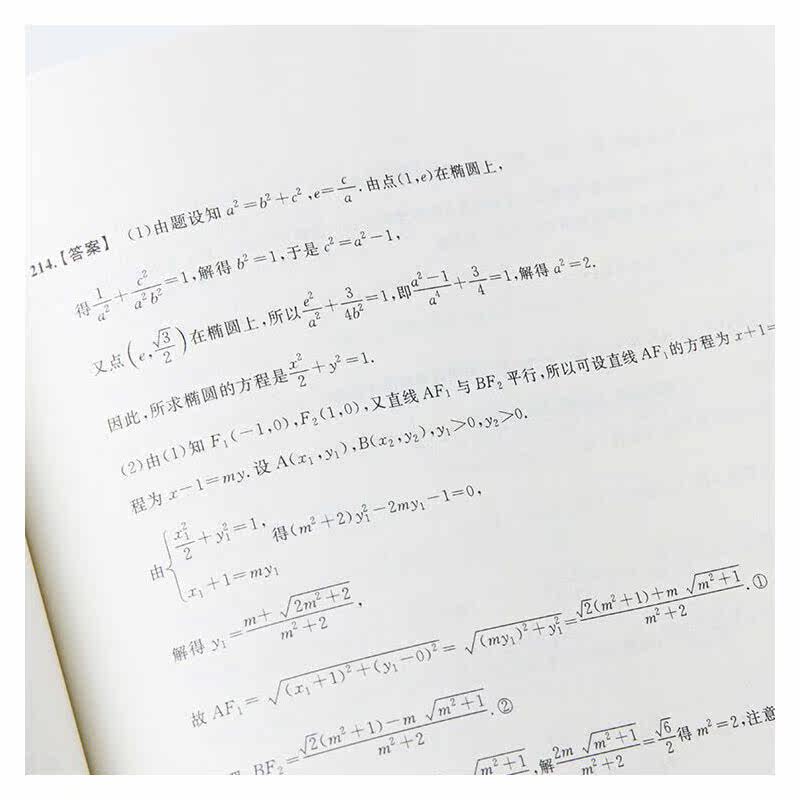 214.【答案】 (1)由题设知 a²=b²+c²,e=c/a.由点(1,e)在椭圆上,
得1/a²+c²/(a²b²)=1,解得 b²=1,于是 c²=a²-1,
又点(e,√3/2)在椭圆上,所以e²/a²+3/(4b²)=1,即(a²-1)/a⁴+3/4=1,解得 a²=2.
因此,所求椭圆的方程是x²/2+y²=1.
(2)由(1)知 F₁(-1,0),F₂(1,0),又直线 AF₁ 与 BF₂ 平行,所以可设直线 AF₁的方程为 x+1=
程为 x-1=my.设 A(x₁,y₁),B(x₂,y₂),y₁>0,y₂>0.
由{x₁²/2+y₁²=1, x₁+1=my₁ 得(m²+2)y₁²-2my₁-1=0,
解得 y₁=(m+√(2m²+2))/(m²+2),
故 AF₁=√((x₁+1)²+(y₁-0)²)=√((my₁)²+y₁²)=(√2(m²+1)+m√(m²+1))/(m²+2).①
BF₂=(√2(m²+1)-m√(m²+1))/(m²+2).②
√(m²+1),解(2m√(m²+1))/(m²+2)=√6/2得 m²=2,注意